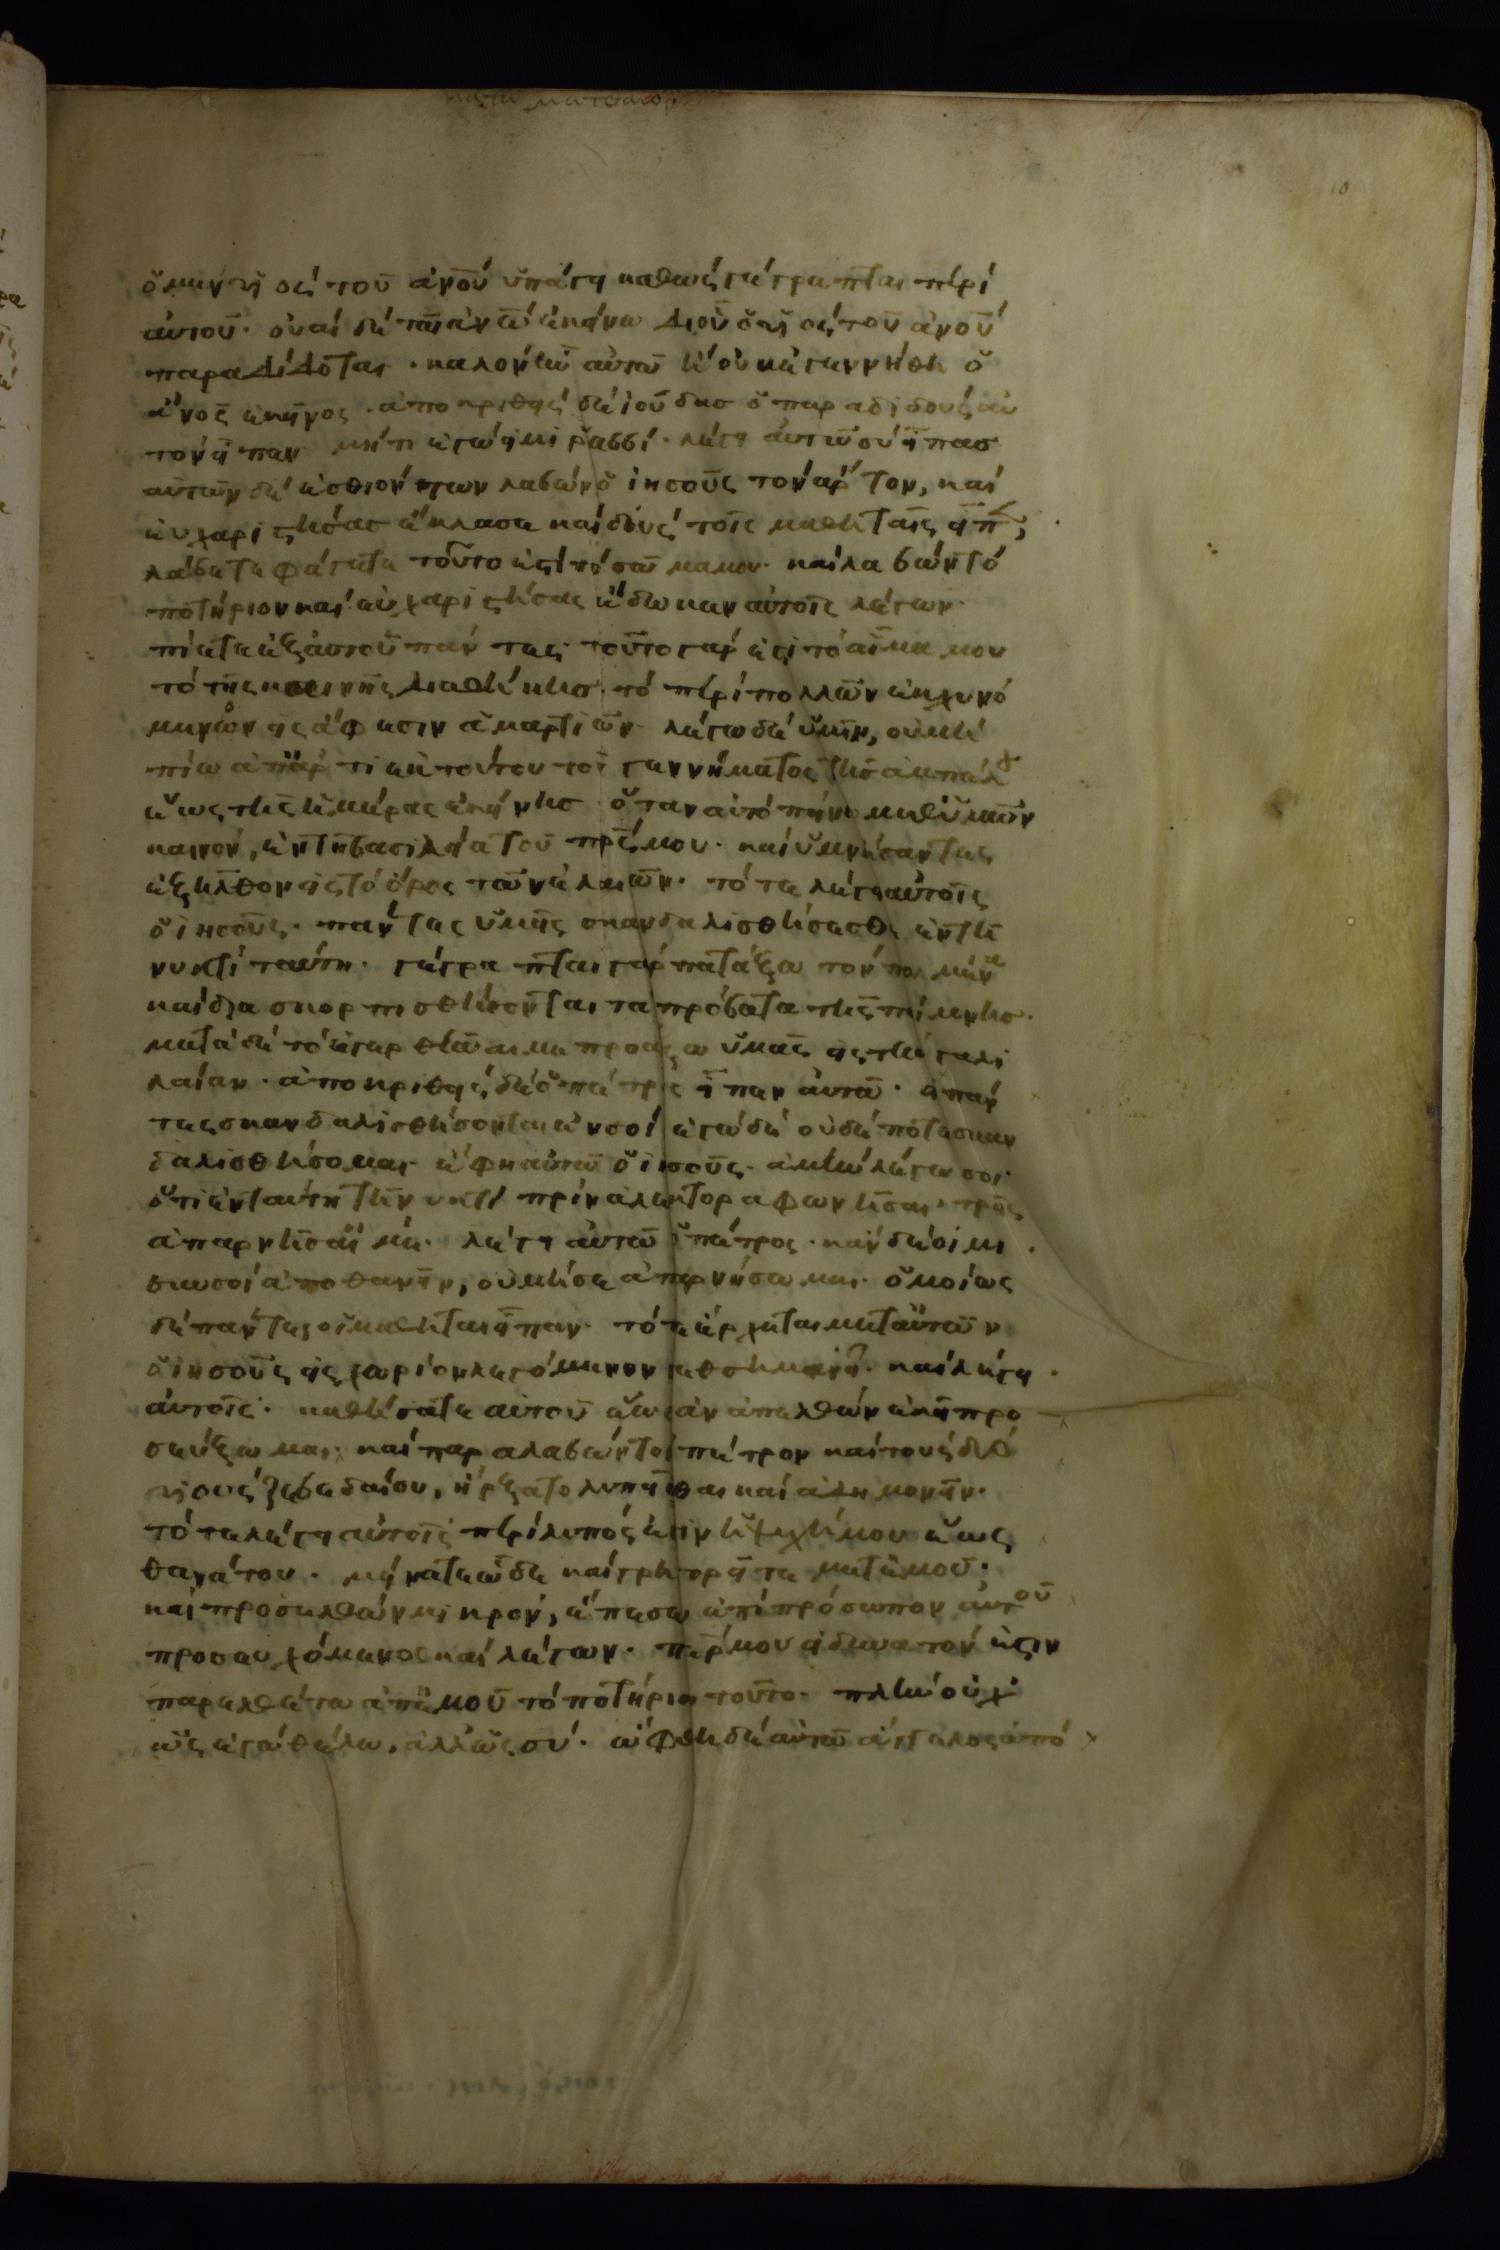 κατα ματθαιον
ὁ μεν υἱος τοῦ ἀνοῦ ὑπάγει καθὼς γέγραπται περὶ
ἀυτοῦ· ὀυαὶ δὲ τῶ ἀνῶ ἐκείνω δι οὗ ὁ υἱὸς τοῦ ἀνοῦ
παραδίδοται· καλον ἦν αὐτῶ ἠ οὐκ ἐγεννήθη ὁ
ἄνος ἐκεῖνος· ἀποκριθεὶς δὲ ἰούδασ ὁ παραδιδοὺς αὐ
τὸν εἶπεν μήτι ἐγώ εἰμι ῥαββί· λέγει ἀυτῶ σὺ εἶπασ
αὐτῶν δὲ ἐσθιόντων λαβὼν ὁ ἰησοῦς τὸν άρτον, καὶ
ἐυχαριστήσας ἔκλασε καὶ δοὺς τοῖς μαθηταῖς εἶπ,
λάβετε φάγετε τοῦτο ἐστὶ τὸ σῶμα μου· καὶ λαβὼν τὸ
ποτήριον καὶ εὐχαριστήσας ἔδωκεν αὐτοῖς λέγων·
πίετε ἐξ ἀυτοῦ πάντες· τοῦτο γάρ ἐστι τὸ αἷμα μου
τὸ τῆς καινῆς διαθήκησ· τὸ περὶ πολλῶν ἐκχυνό
μενον εἰς ἄφεσιν ἁμαρτιῶν· λέγω δὲ ὑμῖν, οὐ μὴ
πίω ἀπάρτι ἐκ τούτου τοῦ γεννήματος τῆσ ἀμπελ
ἕως τῆς ἡμέρας ἐκείνησ ὅταν αὐτὸ πίνω μεθ ὑμῶν
καινον, ἐν τῆ βασιλεία τοῦ πρς μου· καὶ ὑμνήσαντες
ἐξῆλθον εἰς τὸ όρος τῶν ἐλαιῶν· τότε λέγει αὐτοῖς
ὁ ἰησοῦς· πάντες ὑμεῖς σκανδαλισθήσεσθε ἐν τῆ
νυκτὶ ταύτη· γέγραπται γὰρ πατάξω τὸν ποιμένα
καὶ διασκορπισθήσονται τα πρόβατα τῆς ποίμνησ·
μετὰ δὲ τὸ ἐγερθῆναι με προάξω ὑμᾶς εἰς τὴν γαλι
λαίαν· ἀποκριθεὶς δὲ ὁ πέτρος εἶπεν ἀυτῶ· εἰ πάν
τες σκανδαλισθήσονται ἐν σοὶ ἐγὼ δὲ οὐδέποτε σκαν
δαλισθήσομαι· ἔφη αὐτῶ ὁ ἰησοῦς· ἀμὴν λέγω σοι·
ὅτι ἐν ταύτη τῆ νυκτὶ πρὶν ἀλεκτορα φωνῆσαι· τρεῖς
ἀπαρνήση με· λέγει ἀυτῶ ὁ πέτρος· κὰν δέοι με
σὺν σοὶ ἀποθανεῖν, οὐ μή σε ἀπαρνήσωμαι· ὁμοίως
δὲ πάντες οἱ μαθηταὶ εἶπον· τότε ἔρχεται μετ αὐτῶν
ὁ ἰησοῦς εἰς χωρίον λεγόμενον γεθσημανῆ· καὶ λέγει
ἀυτοῖς· καθήσατε αὐτοῦ ἕως ἂν ἀπελθὼν ἐκεῖ προ
σεύξωμαι, καὶ παραλαβὼν τὸν πέτρον καὶ τοὺς δύο
υἱοὺς ζεβεδαίου, ἤρξατο λυπεῖσθαι καὶ ἀδημονεῖν·
τότε λέγει αὐτοῖς περίλυπός ἐστιν ἡ ψυχή μου ἕως
θανάτου· μείνατε ὧδε καὶ γρηγορεῖτε μετ ἐμοῦ·
καὶ προσελθὼν μικρον, ἔπεσεν ἐπὶ πρόσωπον ἀυτοῦ
προσευχόμενος καὶ λέγων· περ μου εἰ δυνατόν ἐστιν
παρελθέτω ἀπ ἐμοῦ τὸ ποτήριον τοῦτο· πλὴν οὐχ
ὡς ἐγὼ θέλω, ἀλλ ὡς σύ· ὤφθη δὲ αὐτῶ ἄγγελος ἀπὸ